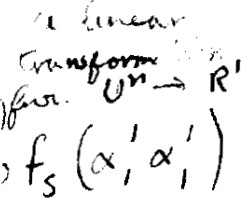 a linear
transform
for. Uⁿ → R'
, fₛ (α'₁ α'₁)